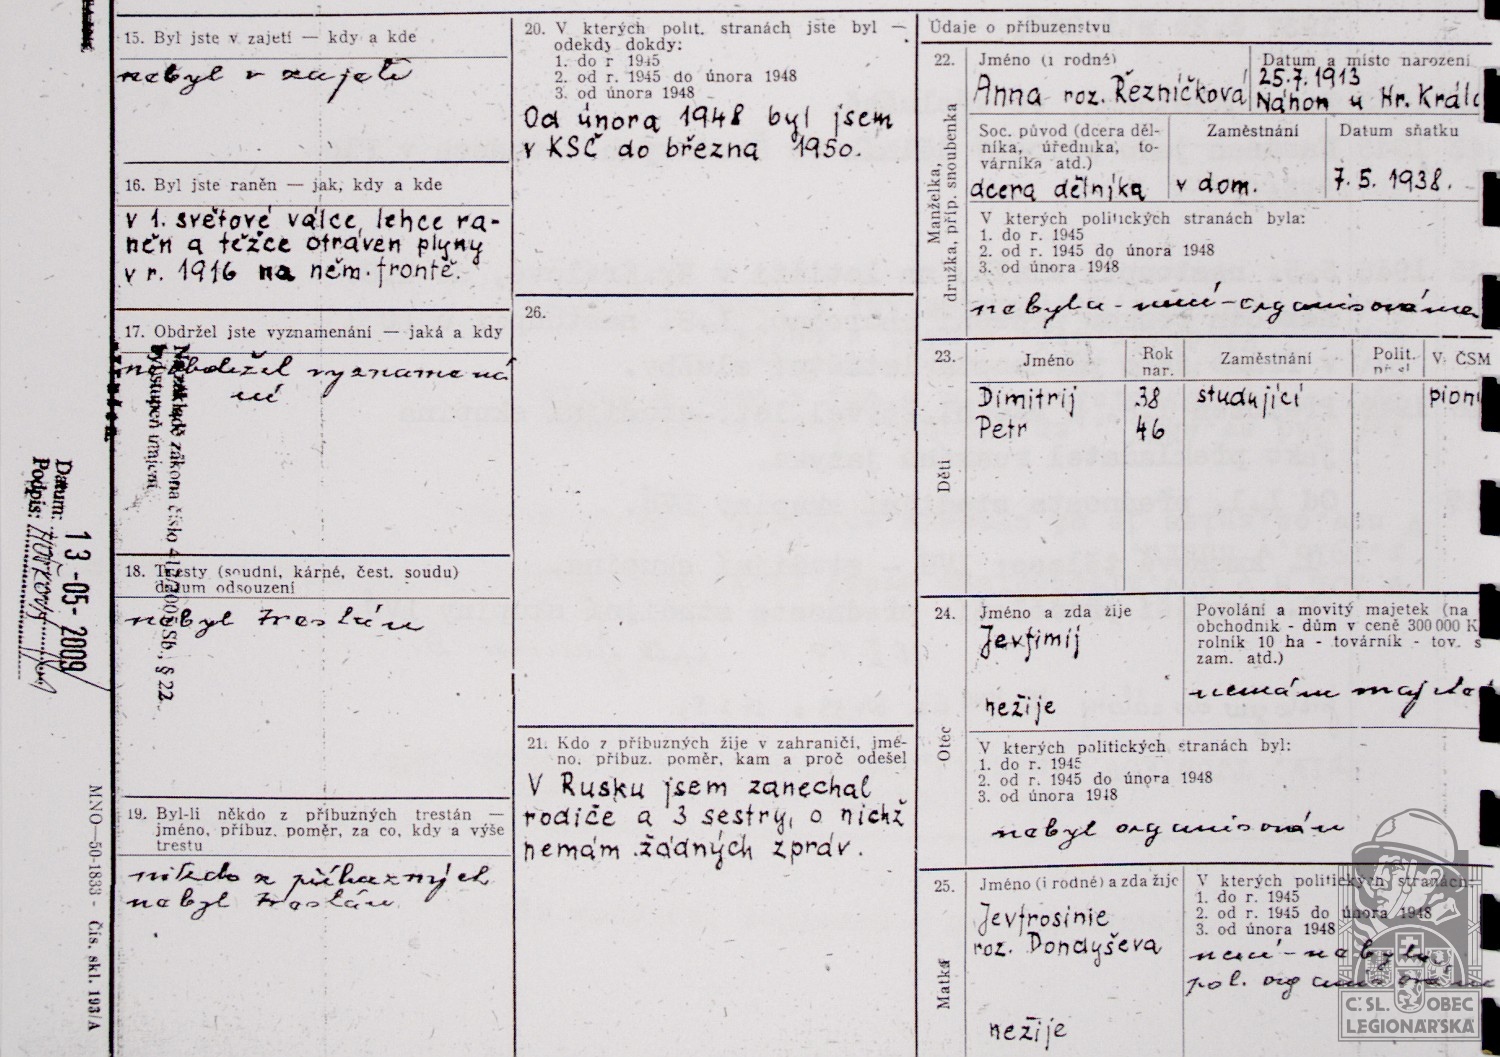 15. Byl jste v zajetí — kdy a kde
nebyl v zajetí
16. Byl jste raněn — jak, kdy a kde
v 1. světové válce, lehce ra-
něn a těžce otráven plyny
v r. 1916 na něm. frontě.
17. Obdržel jste vyznamenání — jaká a kdy
neobdržel vyznamená
ní
18. Tresty (soudní, kárné, čest. soudu)
datum odsouzení
nebyl trestán
19. Byl-li někdo z příbuzných trestán —
jméno, příbuz. poměr, za co, kdy a výše
trestu
nikdo z příbuzných
nebyl trestán
Na základě zákona číslo
Sb., § 22
byl stupeň utajení
Datum: 13-05-2009
Podpis:
MNO—50-1833 - Čís. skl. 193/A
20. V kterých polit. stranách jste byl —
odekdy dokdy:
1. do r 1945
2. od r. 1945 do února 1948
3. od února 1948
Od února 1948 byl jsem
v KSČ do března 1950.
26.
21. Kdo z příbuzných žije v zahraničí, jmé-
no, příbuz. poměr, kam a proč odešel
V Rusku jsem zanechal
rodiče a 3 sestry, o nichž
nemám žádných zpráv.
Údaje o příbuzenstvu
22. Jméno (i rodné) Datum a místo narození
Anna roz. Řezníčková 25.7.1913
Náhon u Hr. Králo
Manželka,
družka, příp. snoubenka
Soc. původ (dcera děl-
níka, úředníka, to-
várníka atd.) Zaměstnání Datum sňatku
dcera dělníka v dom. 7.5.1938.
V kterých politických stranách byla:
1. do r. 1945
2. od r. 1945 do února 1948
3. od února 1948
nebyla - není - organisována
23. Jméno Rok
nar. Zaměstnání Polit. V ČSM
Dimitrij 38 studující pioni
Petr 46
Děti
24. Jméno a zda žije Povolání a movitý majetek (na
obchodník - dům v ceně 300 000 K
rolník 10 ha - továrník - tov. s
zam. atd.)
Jevfimij
nežije
nemám majet
Otec
V kterých politických stranách byl:
1. do r. 1945
2. od r. 1945 do února 1948
3. od února 1948
nebyl organisován
25. Jméno (i rodné) a zda žije V kterých politických stranách:
1. do r. 1945
2. od r. 1945 do února 1948
3. od února 1948
Jevfrosinie
roz. Dondyševa
není - nebyla
pol. organisována
Matka
nežije
Č.SL. OBEC
LEGIONÁŘSKÁ